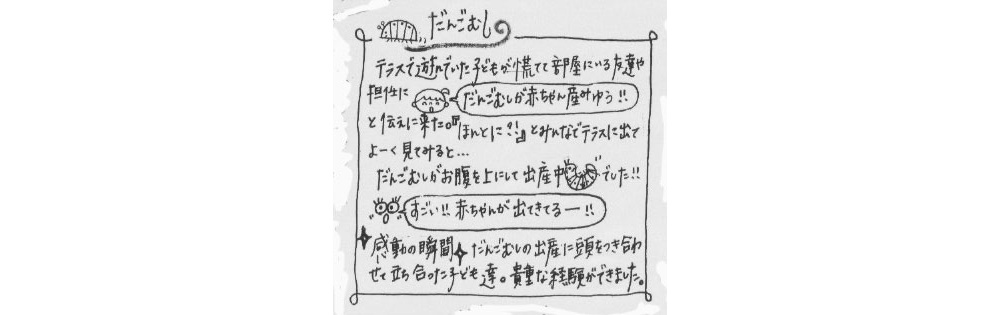 だんごむし
テラスで遊んでいた子どもが慌てて部屋にいる友達や
担任に だんごむしが赤ちゃん産みゆう!!
と伝えに来た。『ほんとに?!』とみんなでテラスに出て
よーく見てみると…
だんごむしがお腹を上にして出産中でした!!
すごい!! 赤ちゃんが出てきてるー!!
感動の瞬間 だんごむしの出産に頭をつき合わ
せて立ち合った子ども達。貴重な経験ができました。